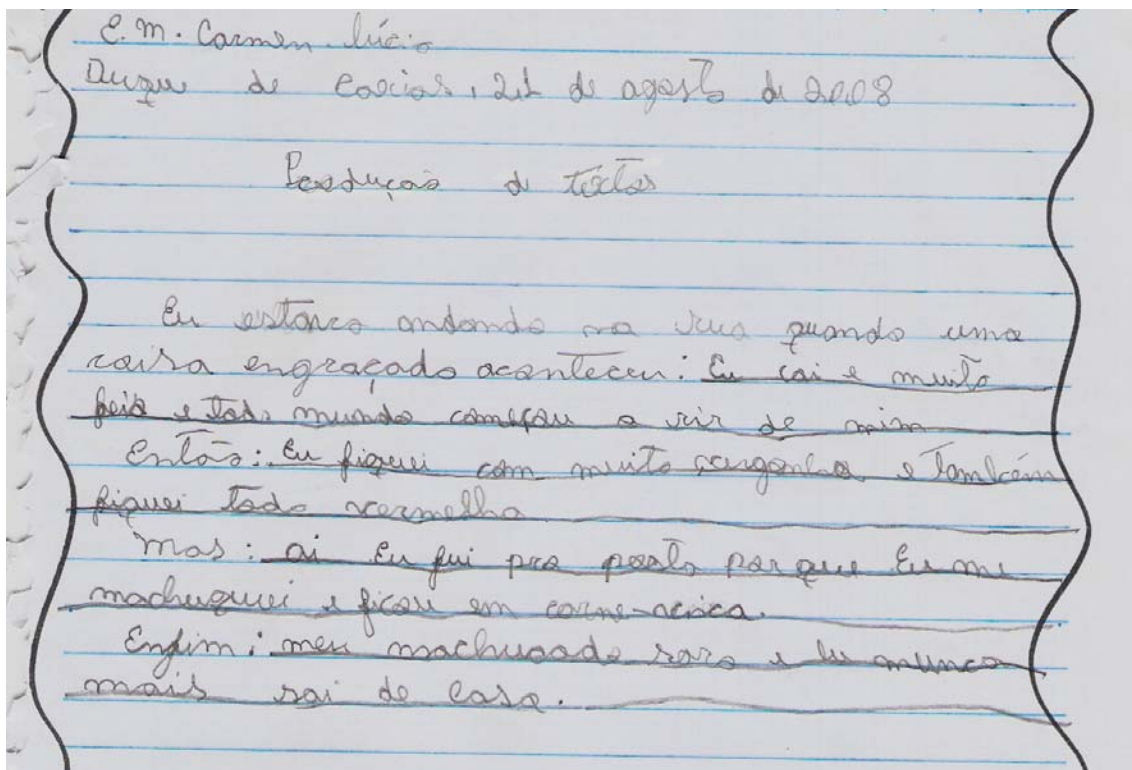 E. M. Carmen Lúcia
Duque de Caxias, 21 de agosto de 2008
Produção de textos
Eu estava andando na rua quando uma
coisa engraçado aconteceu: Eu cai e muito
feio e todo mundo começou a rir de mim
Então: Eu fiquei com muito vergonha e também
fiquei todo vermelho
Mas: ai Eu fui pra posto por que Eu me
machuquei e ficou em carne-viva.
Enfim: meu machucado saro e Eu nunca
mais sai de casa.